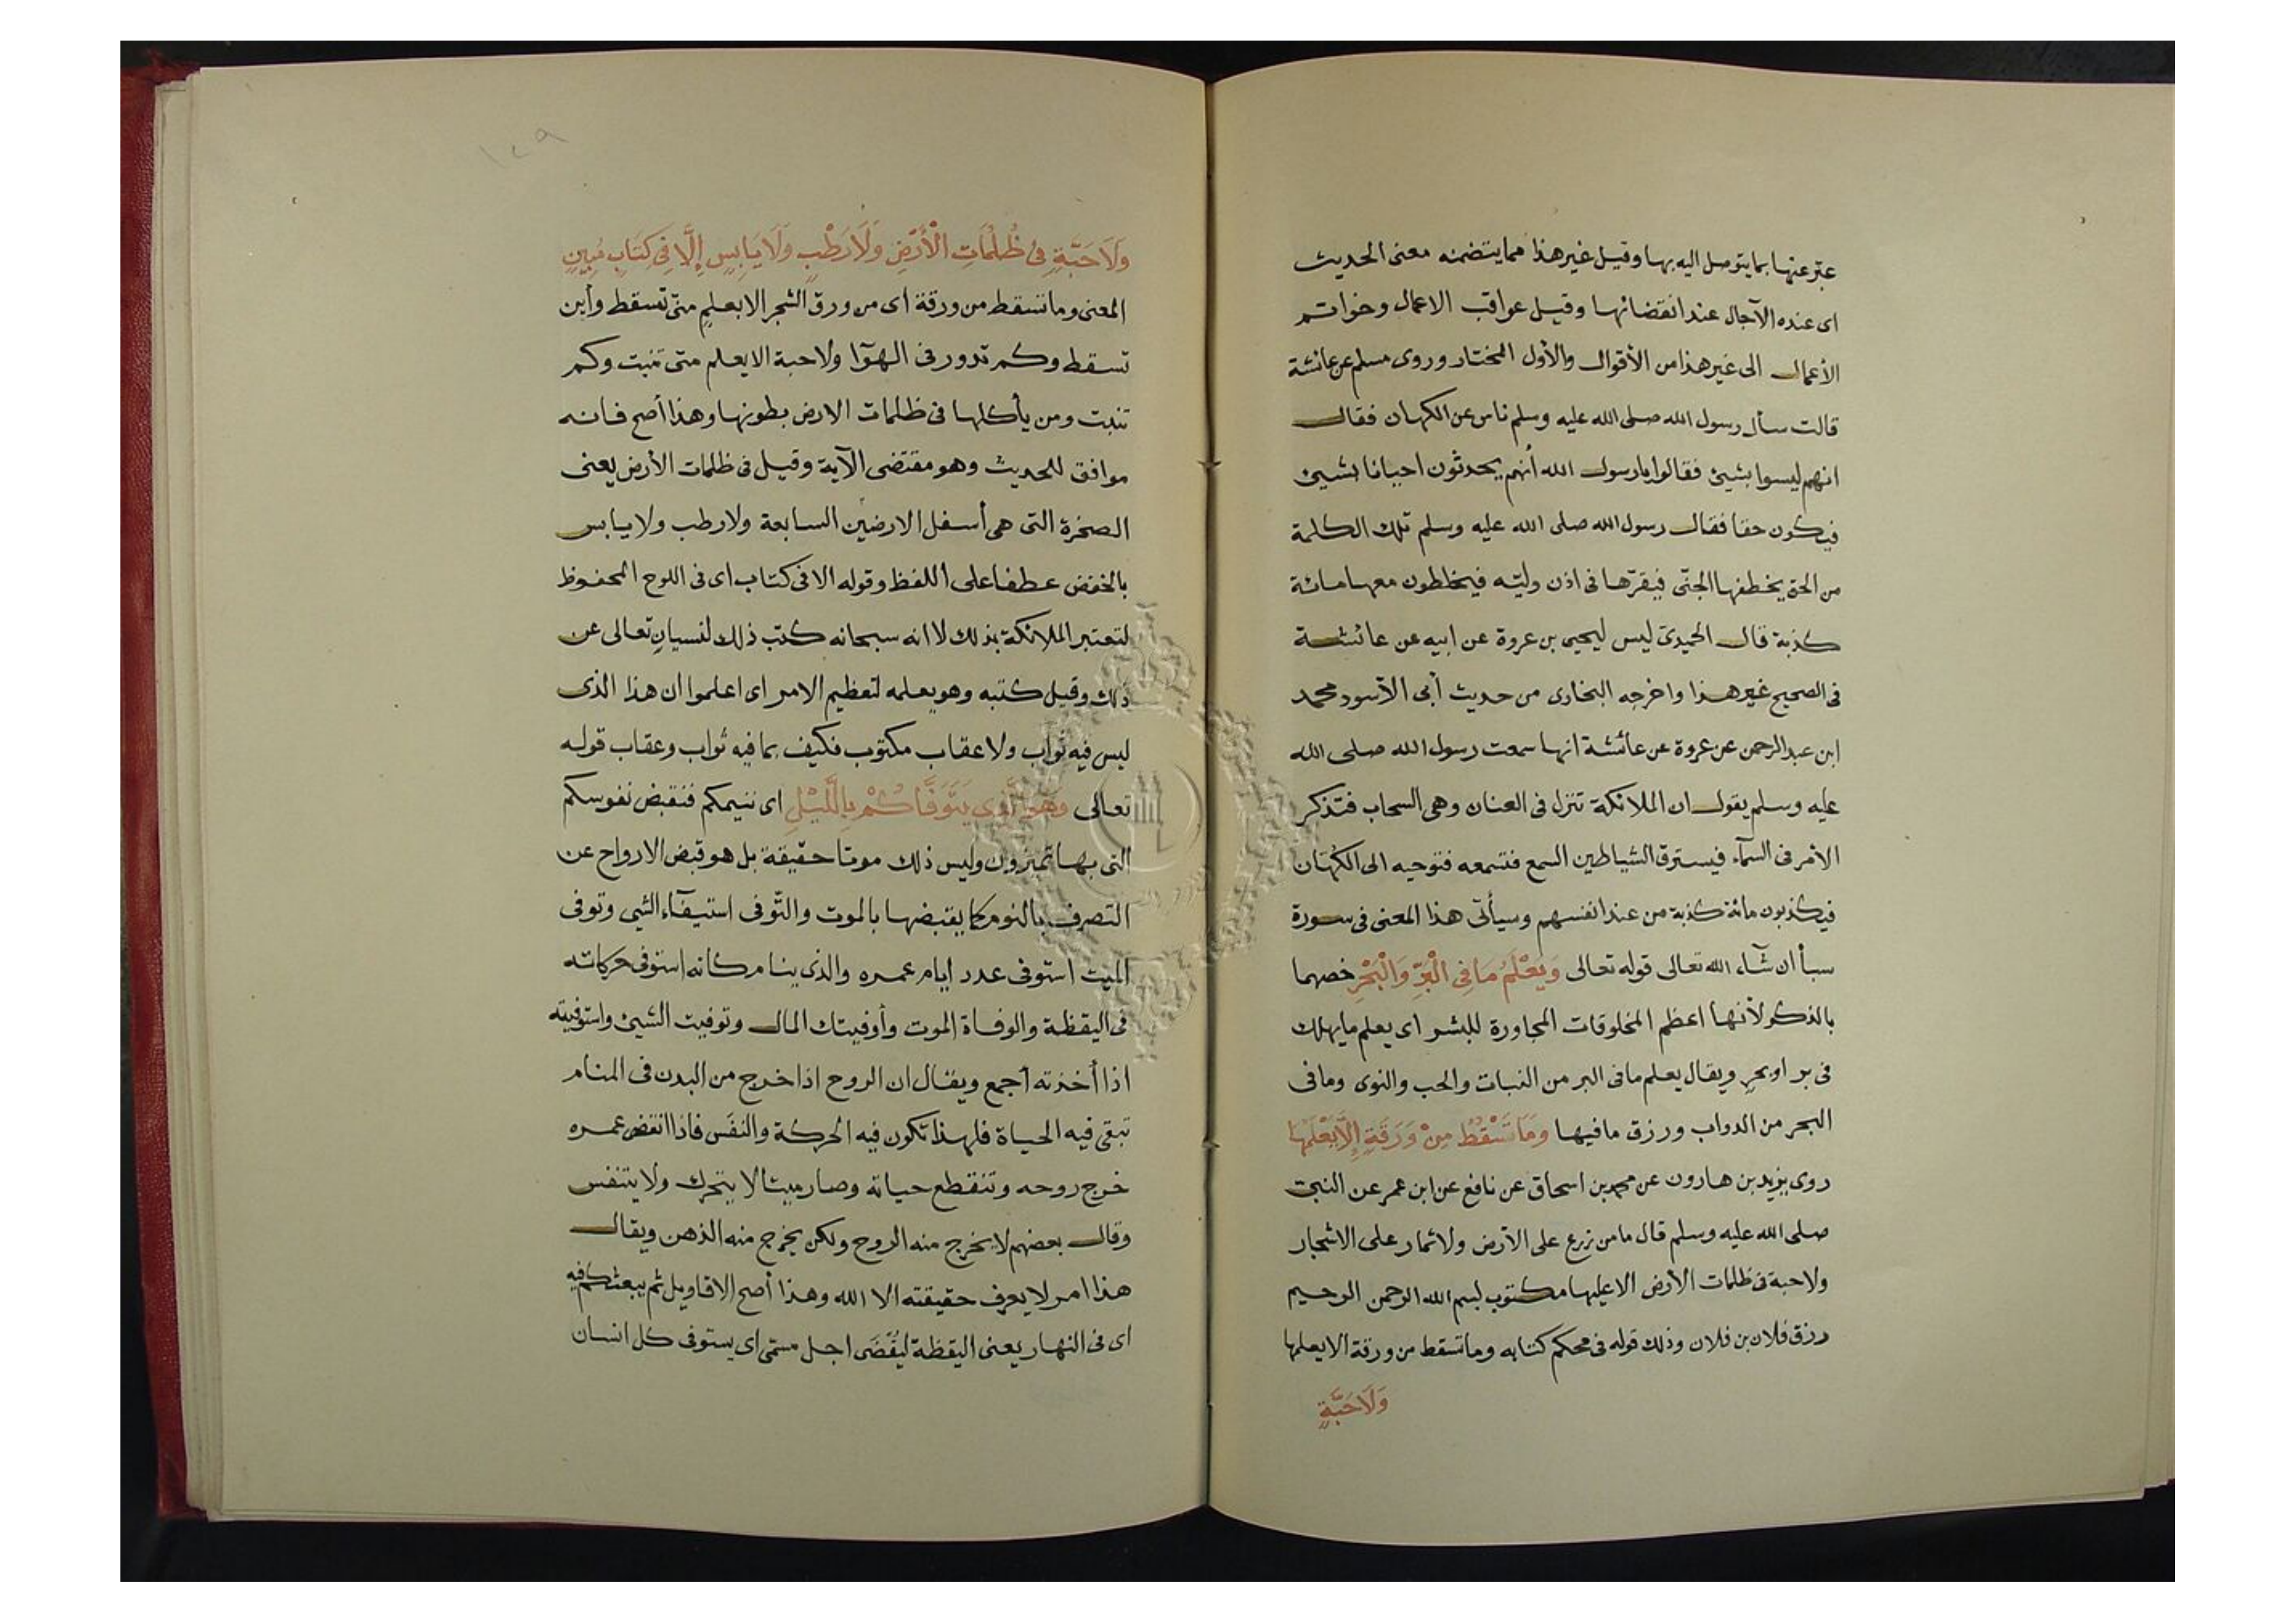 عبر عنها بما يتوصل اليه بها وقيل غير هذا مما يتضمنه معنى الحديث
اى عنده الآجال عند انقضائها وقيل عواقب الاعمال وخواتم
الأعمال الى غير هذا من الأقوال والأول المختار وروى مسلم عن عائشة
قالت سأل رسول الله صلى الله عليه وسلم ناس عن الكهان فقال
انهم ليسوا بشيئ فقالوا يا رسول الله أنهم يحدثون احيانا بشيئ
فيكون حقا فقال رسول الله صلى الله عليه وسلم تلك الكلمة
من الحق يخطفها الجنّى فيقرّها فى اذن وليّه فيخلطون معها مائة
كذبة قال الحميدى ليس ليحيى بن عروة عن ابيه عن عائشة
فى الصحيح غير هذا واخرجه البخارى من حديث أبى الأسود محمد
ابن عبد الرحمن عن عروة عن عائشة انها سمعت رسول الله صلى الله
عليه وسلم يقول ان الملائكة تنزل فى العنان وهى السحاب فتذكر
الأمر فى السمآء فيسترق الشياطين السمع فتسمعه فتوحيه الى الكهان
فيكذبون مائة كذبة من عند انفسهم وسيأتى هذا المعنى فى سورة
سبأ ان شآء الله تعالى قوله تعالى وَيَعْلَمُ مَا فِى الْبَرِّ وَالْبَحْرِ خصهما
بالذكر لأنها اعظم المخلوقات المجاورة للبشر اى يعلم ما يهلك
فى بر او بحرٍ ويقال يعلم ما فى البر من النبات والحب والنوى وما فى
البحر من الدواب ورزق ما فيها وَمَا تَسْقُطُ مِنْ وَرَقَةٍ إِلَّا يَعْلَمُهَا
روى يزيد بن هارون عن محمد بن اسحاق عن نافع عن ابن عمر عن النبى
صلى الله عليه وسلم قال ما من زرع على الأرض ولا ثمار على الاشجار
ولا حبة فى ظلمات الأرض الا عليها مكتوب بسم الله الرحمن الرحيم
رزق فلان بن فلان وذلك قوله فى محكم كتابه وما تسقط من ورقة الا يعلمها
وَلَا حَبَّةٍ
١٢٩
وَلَا حَبَّةٍ فِى ظُلُمَاتِ الْأَرْضِ وَلَا رَطْبٍ وَلَا يَابِسٍ إِلَّا فِى كِتَابٍ مُبِينٍ
المعنى وما تسقط من ورقة أى من ورق الشجر الا يعلم متى تسقط وأين
تسقط وكم تدور فى الهوآا ولا حبة الا يعلم متى تنبت وكم
تنبت ومن يأكلها فى ظلمات الارض بطونها وهذا أصح فانه
موافق للحديث وهو مقتضى الآية وقيل فى ظلمات الأرض يعنى
الصخرة التى هى أسفل الارضين السابعة ولا رطب ولا يابس
بالخفض عطفا على اللفظ وقوله الا فى كتاب اى فى اللوح المحفوظ
لتعتبر الملائكة بذلك لا انه سبحانه كتب ذلك لنسيان تعالى عن
ذلك وقيل كتبه وهو يعلمه لتعظيم الامر اى اعلموا ان هذا الذى
ليس فيه ثواب ولا عقاب مكتوب فكيف بما فيه ثواب وعقاب قوله
تعالى وَهُوَ الَّذِى يَتَوَفَّاكُمْ بِاللَّيْلِ اى ننيمكم فنقبض نفوسكم
التى بها تميزون وليس ذلك موتا حقيقة بل هو قبض الارواح عن
التصرف بالنوم كما يقبضها بالموت والتّوفى استيفآء الشى وتوفى
الميت استوفى عدد ايام عمره والذى ينام كانه استوفى حركاته
فى اليقظة والوفاة الموت وأوفيتك المال وتوفيت الشيئ واستوفيته
اذا أخذته أجمع ويقال ان الروح اذا خرج من البدن فى المنام
تبقى فيه الحياة فلهذا تكون فيه الحركة والنفَس فاذا انقضى عمره
خرج روحه وتنقطع حياته وصار ميتا لا يتحرك ولا يتنفس
وقال بعضهم لا يخرج منه الروح ولكن يخرج منه الذهن ويقال
هذا امر لا يعرف حقيقته الا الله وهذا أصح الاقاويل ثم يبعثكم فيه
اى فى النهار يعنى اليقظة ليُقْضَى اجل مسمّى اى يستوفى كل انسان